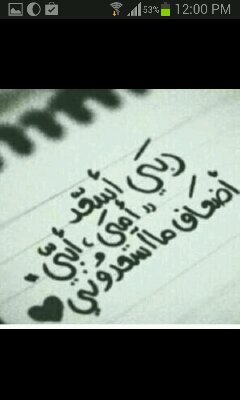 53% 12:00 PM
ربَي أسعّد
” أمَي ، أبّي ،
أضعَاف ماأسعدوُني